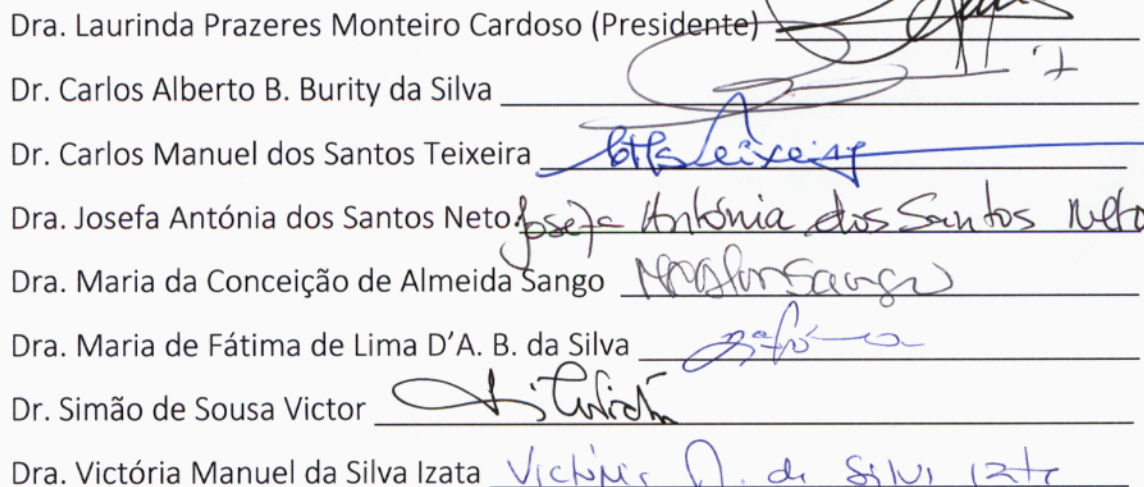 Dra. Laurinda Prazeres Monteiro Cardoso (Presidente)
Dr. Carlos Alberto B. Burity da Silva
Dr. Carlos Manuel dos Santos Teixeira
Dra. Josefa Antónia dos Santos Neto Josefa Antónia dos Santos Neto
Dra. Maria da Conceição de Almeida Sango
Dra. Maria de Fátima de Lima D'A. B. da Silva
Dr. Simão de Sousa Victor
Dra. Victória Manuel da Silva Izata